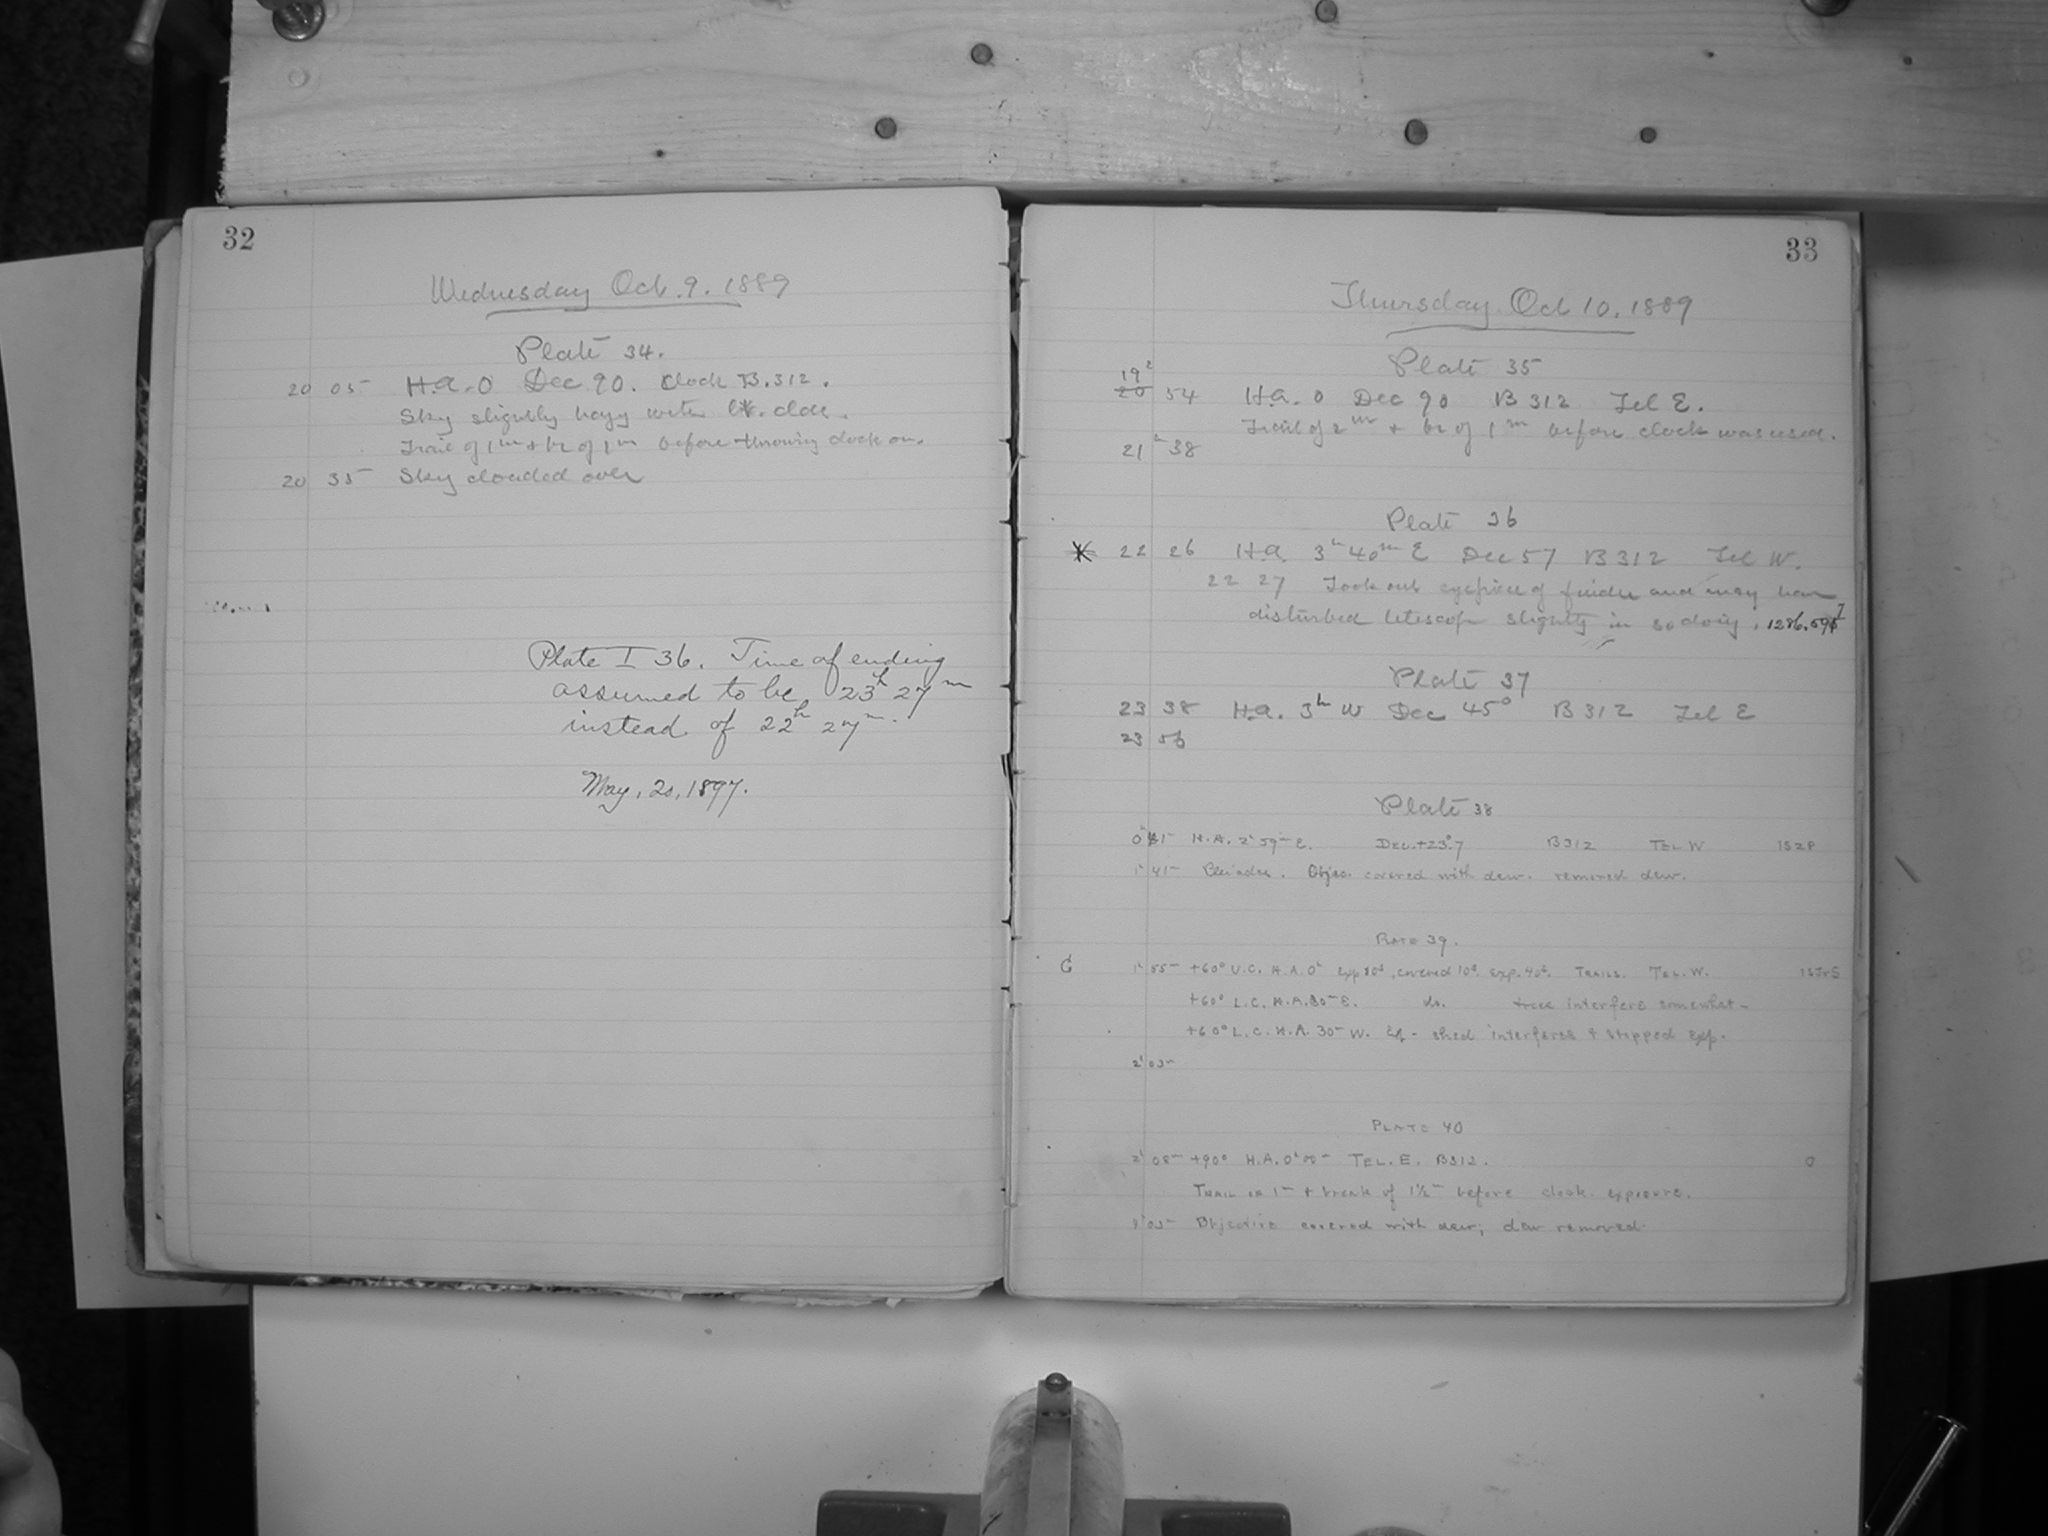 32
Wednesday Oct. 9. 1889
Plate 34.
20 05 H.a. 0 Dec 90. Clock B.312.
Sky slightly hazy with clds.
Trail of 1m + br of 1m before throwing clock on.
20 35 Sky clouded over
Plate I 36. Time of ending
assumed to be 23h 27m
instead of 22h 27m.
May, 20, 1897.
33
Thursday Oct 10. 1889
Plate 35
19h
20 54 H.a. 0 Dec 90 B 312 Tel E.
Trail of 2m + br of 1m before clock was used.
21h 38
Plate 36
22 26 H.a. 3h 40m E Dec 57 B 312 Tel W.
22 27 Took out eyepiece of finder and may have
disturbed telescope slightly in so doing.
Plate 37
23 38 H.a. 3h W Dec 45° B 312 Tel E
23 56
Plate 38
H.A. 2h 59m E. Dec. +23°.7 B312 Tel W
1h 41m Pleiades. Objec. covered with dew. removed dew.
Plate 39.
G 1h 55m +60° U.C. H.A. 0h covered 10s. exp. 40s. Trails. Tel. W.
+60° L.C. H.A. 30m E. do. tree interfere somewhat
+60° L.C. H.A. 30m W. shed interferes + stopped exp.
2h 03m
Plate 40
2h 08m +90° H.A. 0h 00m Tel. E. B312. 0
Trail of 1m + break of 1½m before clock exposure.
Objective covered with dew; dew removed